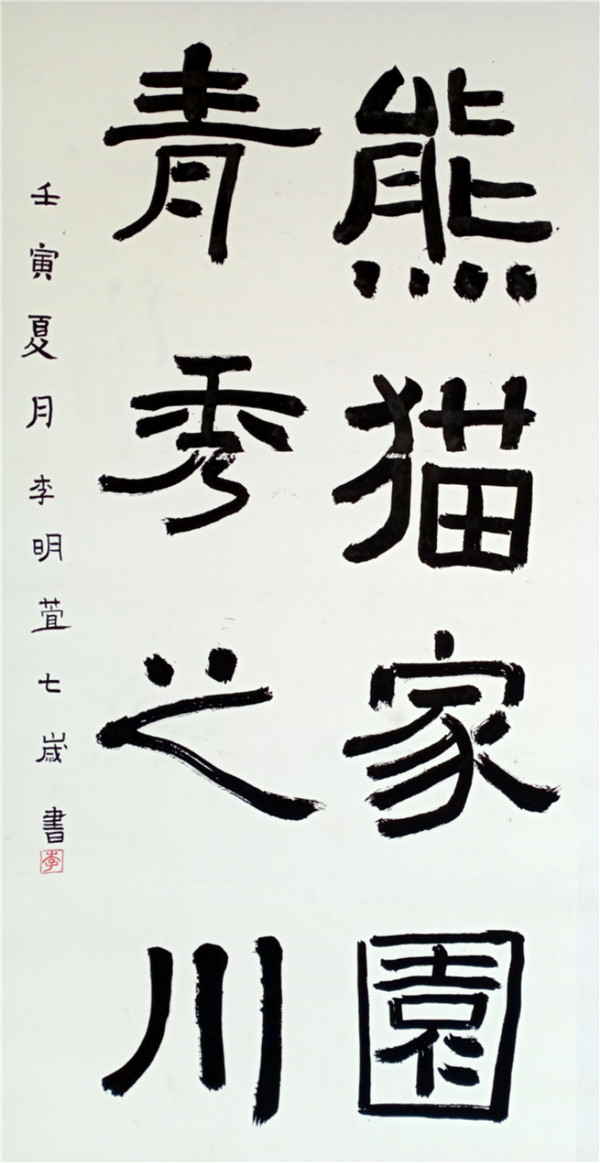 熊猫家園
青秀之川
壬寅夏月李明萱七歲書
李